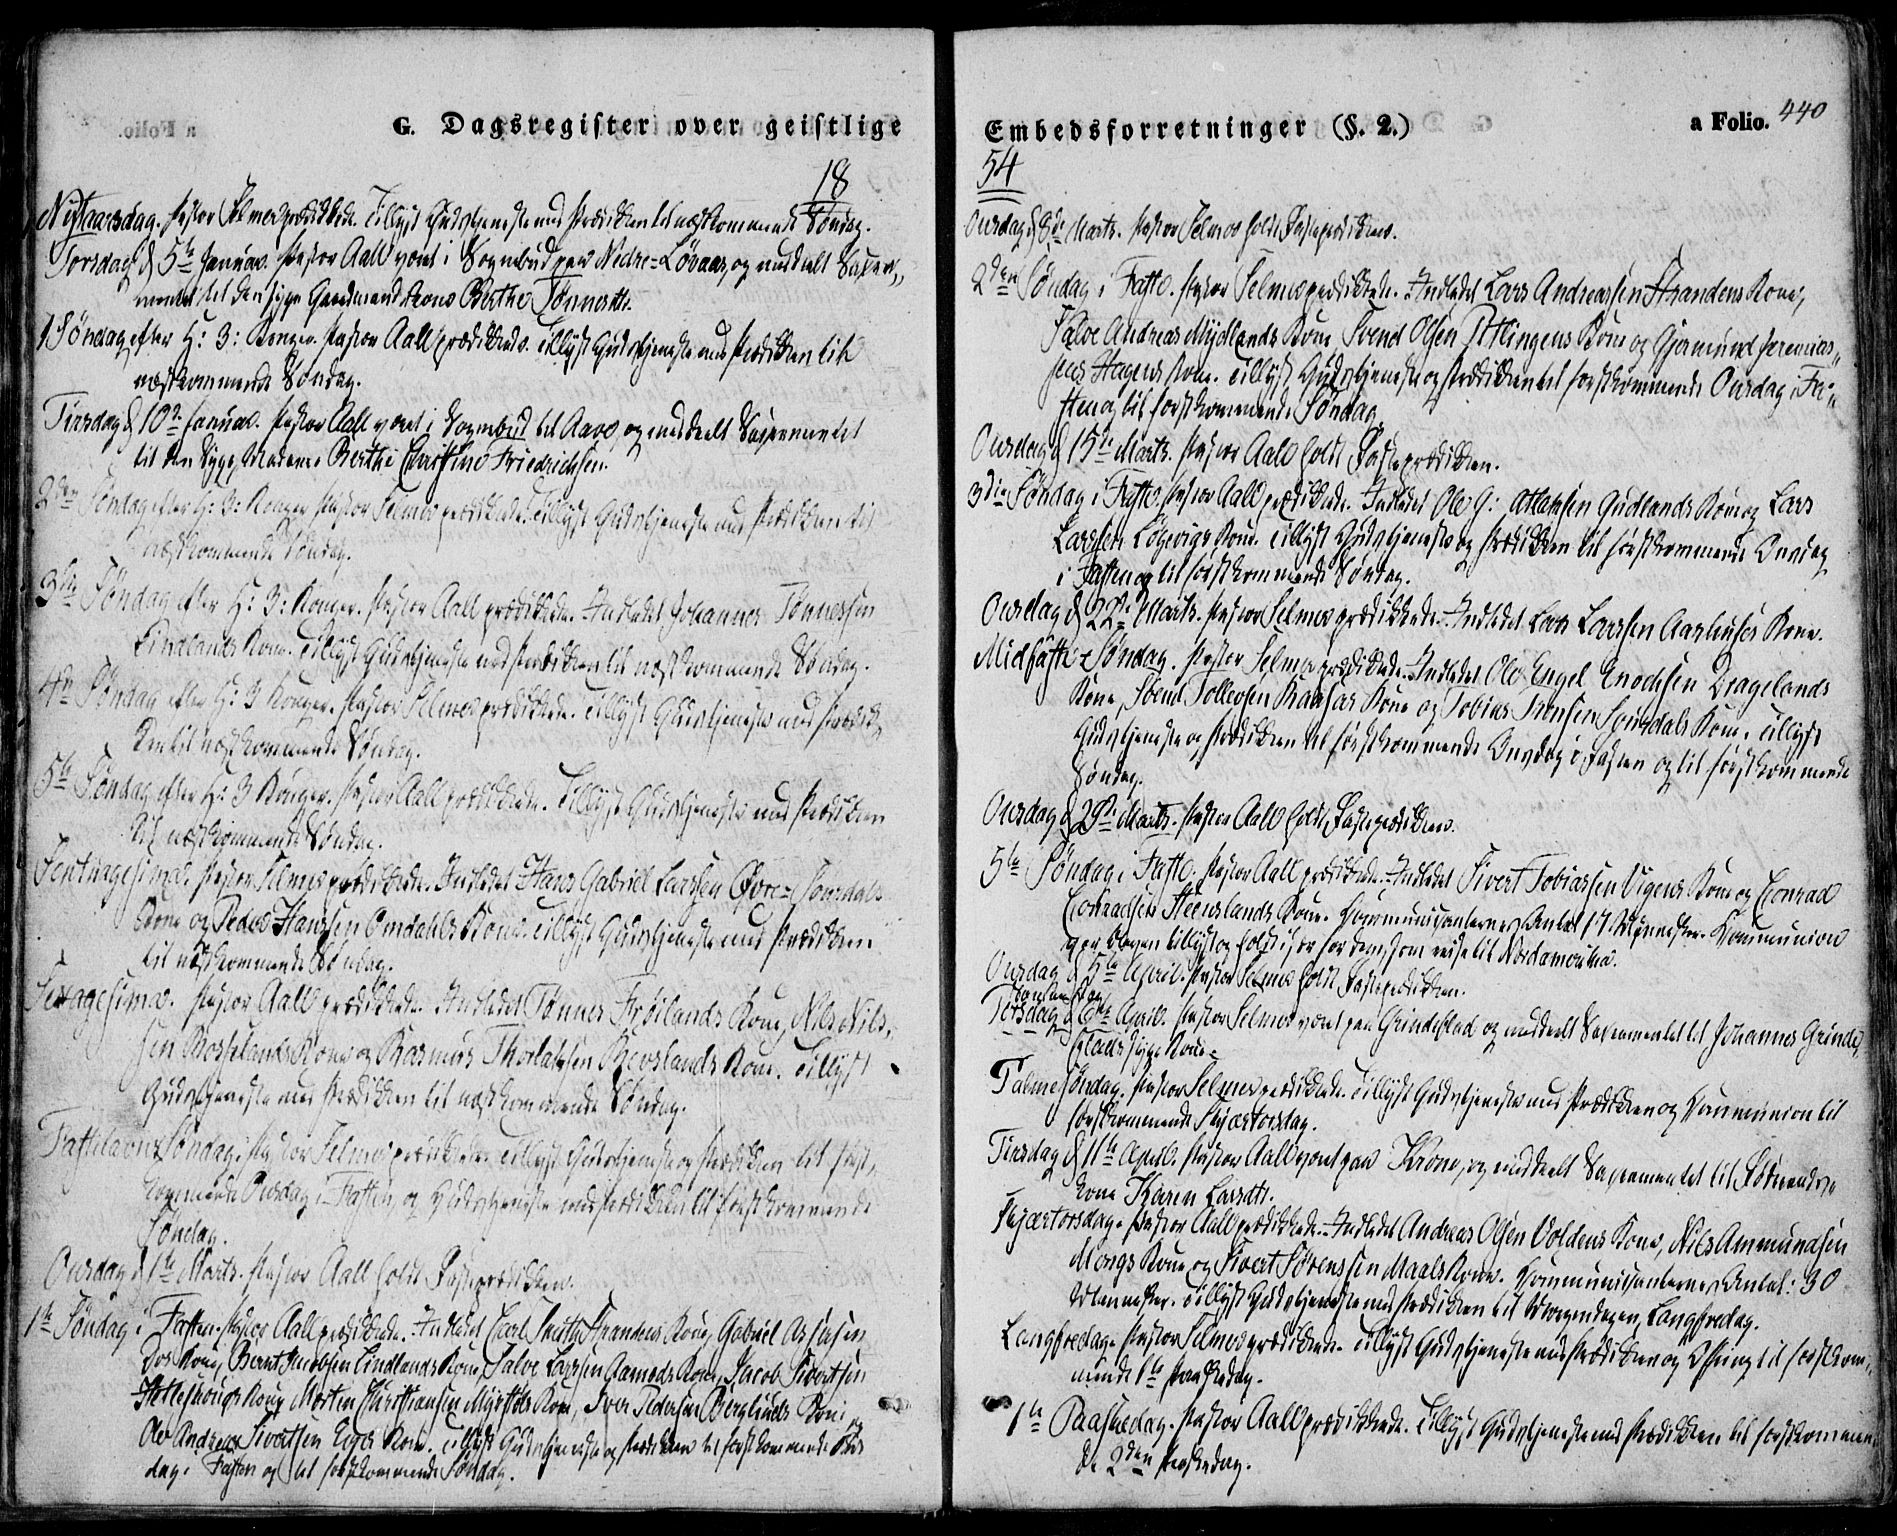 G. Dagsregister over geistlige
18
Nytaarsdag. Pastor Selmer prædikede. Tillyst Gudstjeneste med Prædiken til næstkommende Søndag.
Torsdag d 5te Januar. Pastor Aall været i Sognebud paa Nedre-Løvaas, og meddeelt Sacra-
mentet til den syge Gaardmandskone Berthe Tønnesdtr.
1 Søndag efter H: 3: Konger. Pastor Aall prædikede. Tillyst Gudstjeneste med Prædiken til
næstkommende Søndag.
Tirsdag d 10de Januar. Pastor Aall været i Sognebud til Aaros, og meddeelt Sacramentet
til den syge Madame Berthe Christine Friedrichsen.
2den Søndag efter H: 3: Konger Pastor Selmer prædikede. Tillyst Gudstjeneste med Prædiken til
næstkommende Søndag.
3die Søndag efter H: 3: Konger. Pastor Aall prædikede. Indledet Johannes Tønnessen
Lindlands Kone. Tillyst Gudstjeneste med Prædiken til næstkommende Søndag.
4de Søndag efter H: 3 Konger. Pastor Selmer prædikede. Tillyst Gudstjeneste med Prædi-
ken til næstkommende Søndag.
5te Søndag efter H: 3 Konger. Pastor Aall prædikede. Tillyst Gudstjeneste med Prædiken
til næstkommende Søndag.
Septuagesima. Pastor Selmer prædikede. Indledet Hans Gabriel Larssen Øvre-
Kone og Peder Hanssen Omdahls Kone. Tillyst Gudstjeneste med Prædiken
til næstkommende Søndag.
Sexagesima. Pastor Aall prædikede. Indledet Tønnes Frøilands Kone, Nils Nils-
sen Kone og Rasmus Kone. Tillyst
Gudstjeneste med Prædiken til næstkommende Søndag.
Fastelavns Søndag. Pastor Selmer prædikede. Tillyst Gudstjeneste og Prædiken til først-
kommende Onsdag i Fasten, og Gudstjeneste med Prædiken til førstkommende
Søndag.
Onsdag d 1te Marts. Pastor Aall holdt Fasteprædiken.
1te Søndag i Fasten. Pastor Aall prædikede. Indledet Carl Smith Strandens Kone, Gabriel
Kone, Bernt Jacobsen Lindlands Kone, Salve Larssen Kone, Jacob Sivertsen
Kone, Morten Christiansen Kone, Iver Pedersen Berglunds Kone og
Ole Andreas Sivertsen Kone. Tillyst Gudstjeneste og Prædiken til førstkommende Ons-
dag i Fasten og til førstkommende Søndag.
Embedsforretninger (§. 2.)
a Folio. 440
54
Onsdag d 8de Marts. Pastor Selmer holdt Fasteprædiken.
2den Søndag i Faste. Pastor Selmer prædikede. Indledet Lars Andreassen Strandens Kone,
Salve Andreas Mydlands Kone, Svend Olsen Kone og Gjermund Jeremias-
sens Hagens Kone. Tillyst Gudstjeneste og Prædiken til førstkommende Onsdag i Fa-
sten og til førstkommende Søndag.
Onsdag d 15de Marts. Pastor Aall holdt Fasteprædiken.
3die Søndag i Faste. Pastor Aall prædikede. Indledet Ole G: Atlaksen Gudlands Kone og Lars
Larssen Kone. Tillyst Gudstjeneste og Prædiken til førstkommende Onsdag
i Fasten og til førstkommende Søndag.
Onsdag d 22de Marts. Pastor Selmer prædikede. Indledet Lars Larssen Kone.
Midfaste-Søndag. Pastor Selmer prædikede. Indledet Ole Engel Enochsen Dragelands
Kone, Svend Tollevsen Kone og Tobias Kone. Tillyst
Gudstjeneste og Prædiken til førstkommende Onsdag i Fasten og til førstkommende
Søndag.
Onsdag d 29de Marts. Pastor Aall holdt Fasteprædiken.
5te Søndag i Faste. Pastor Aall prædikede. Indledet Sivert Tobiassen Vigens Kone og Conrad
Conradsen Steenslands Kone. Communicanternes Antal 17 Mennesker. Communion
tillyst og holdt især for dem, som reise til Nordamerika.
Onsdag d 5te April. Pastor Selmer holdt Fasteprædiken.
Torsdag d 6te April. Pastor Selmer været paa Grindeslad og meddeelt Sacramentet til Johannes Grinde-
slads syge Kone.
Palmesøndag. Pastor Selmer prædikede. Tillyst Gudstjeneste med Prædiken og Communion til
førstkommende Skjærtorsdag.
Tirsdag d 11te April. Pastor Aall været paa Krone, og meddeelt Sacramentet til
kone Karen Larsdtr.
Skjærtorsdag. Pastor Aall prædikede. Indledet Andreas Olsen Voldens Kone, Nils Ammundsen
Mongs Kone og Sivert Sørenssen Maals Kone. Communicanternes Antal: 30
Mennesker. Tillyst Gudstjeneste med Prædiken til Morgendagen, Langfredag.
Langfredag. Pastor Selmer prædikede. Tillyst Gudstjeneste med Prædiken og Offring til førstkom-
mende 1te Paaskedag.
1te Paaskedag. Pastor Aall prædikede. Tillyst Gudstjeneste med Prædiken til førstkommen-
de 2den Paaskedag.